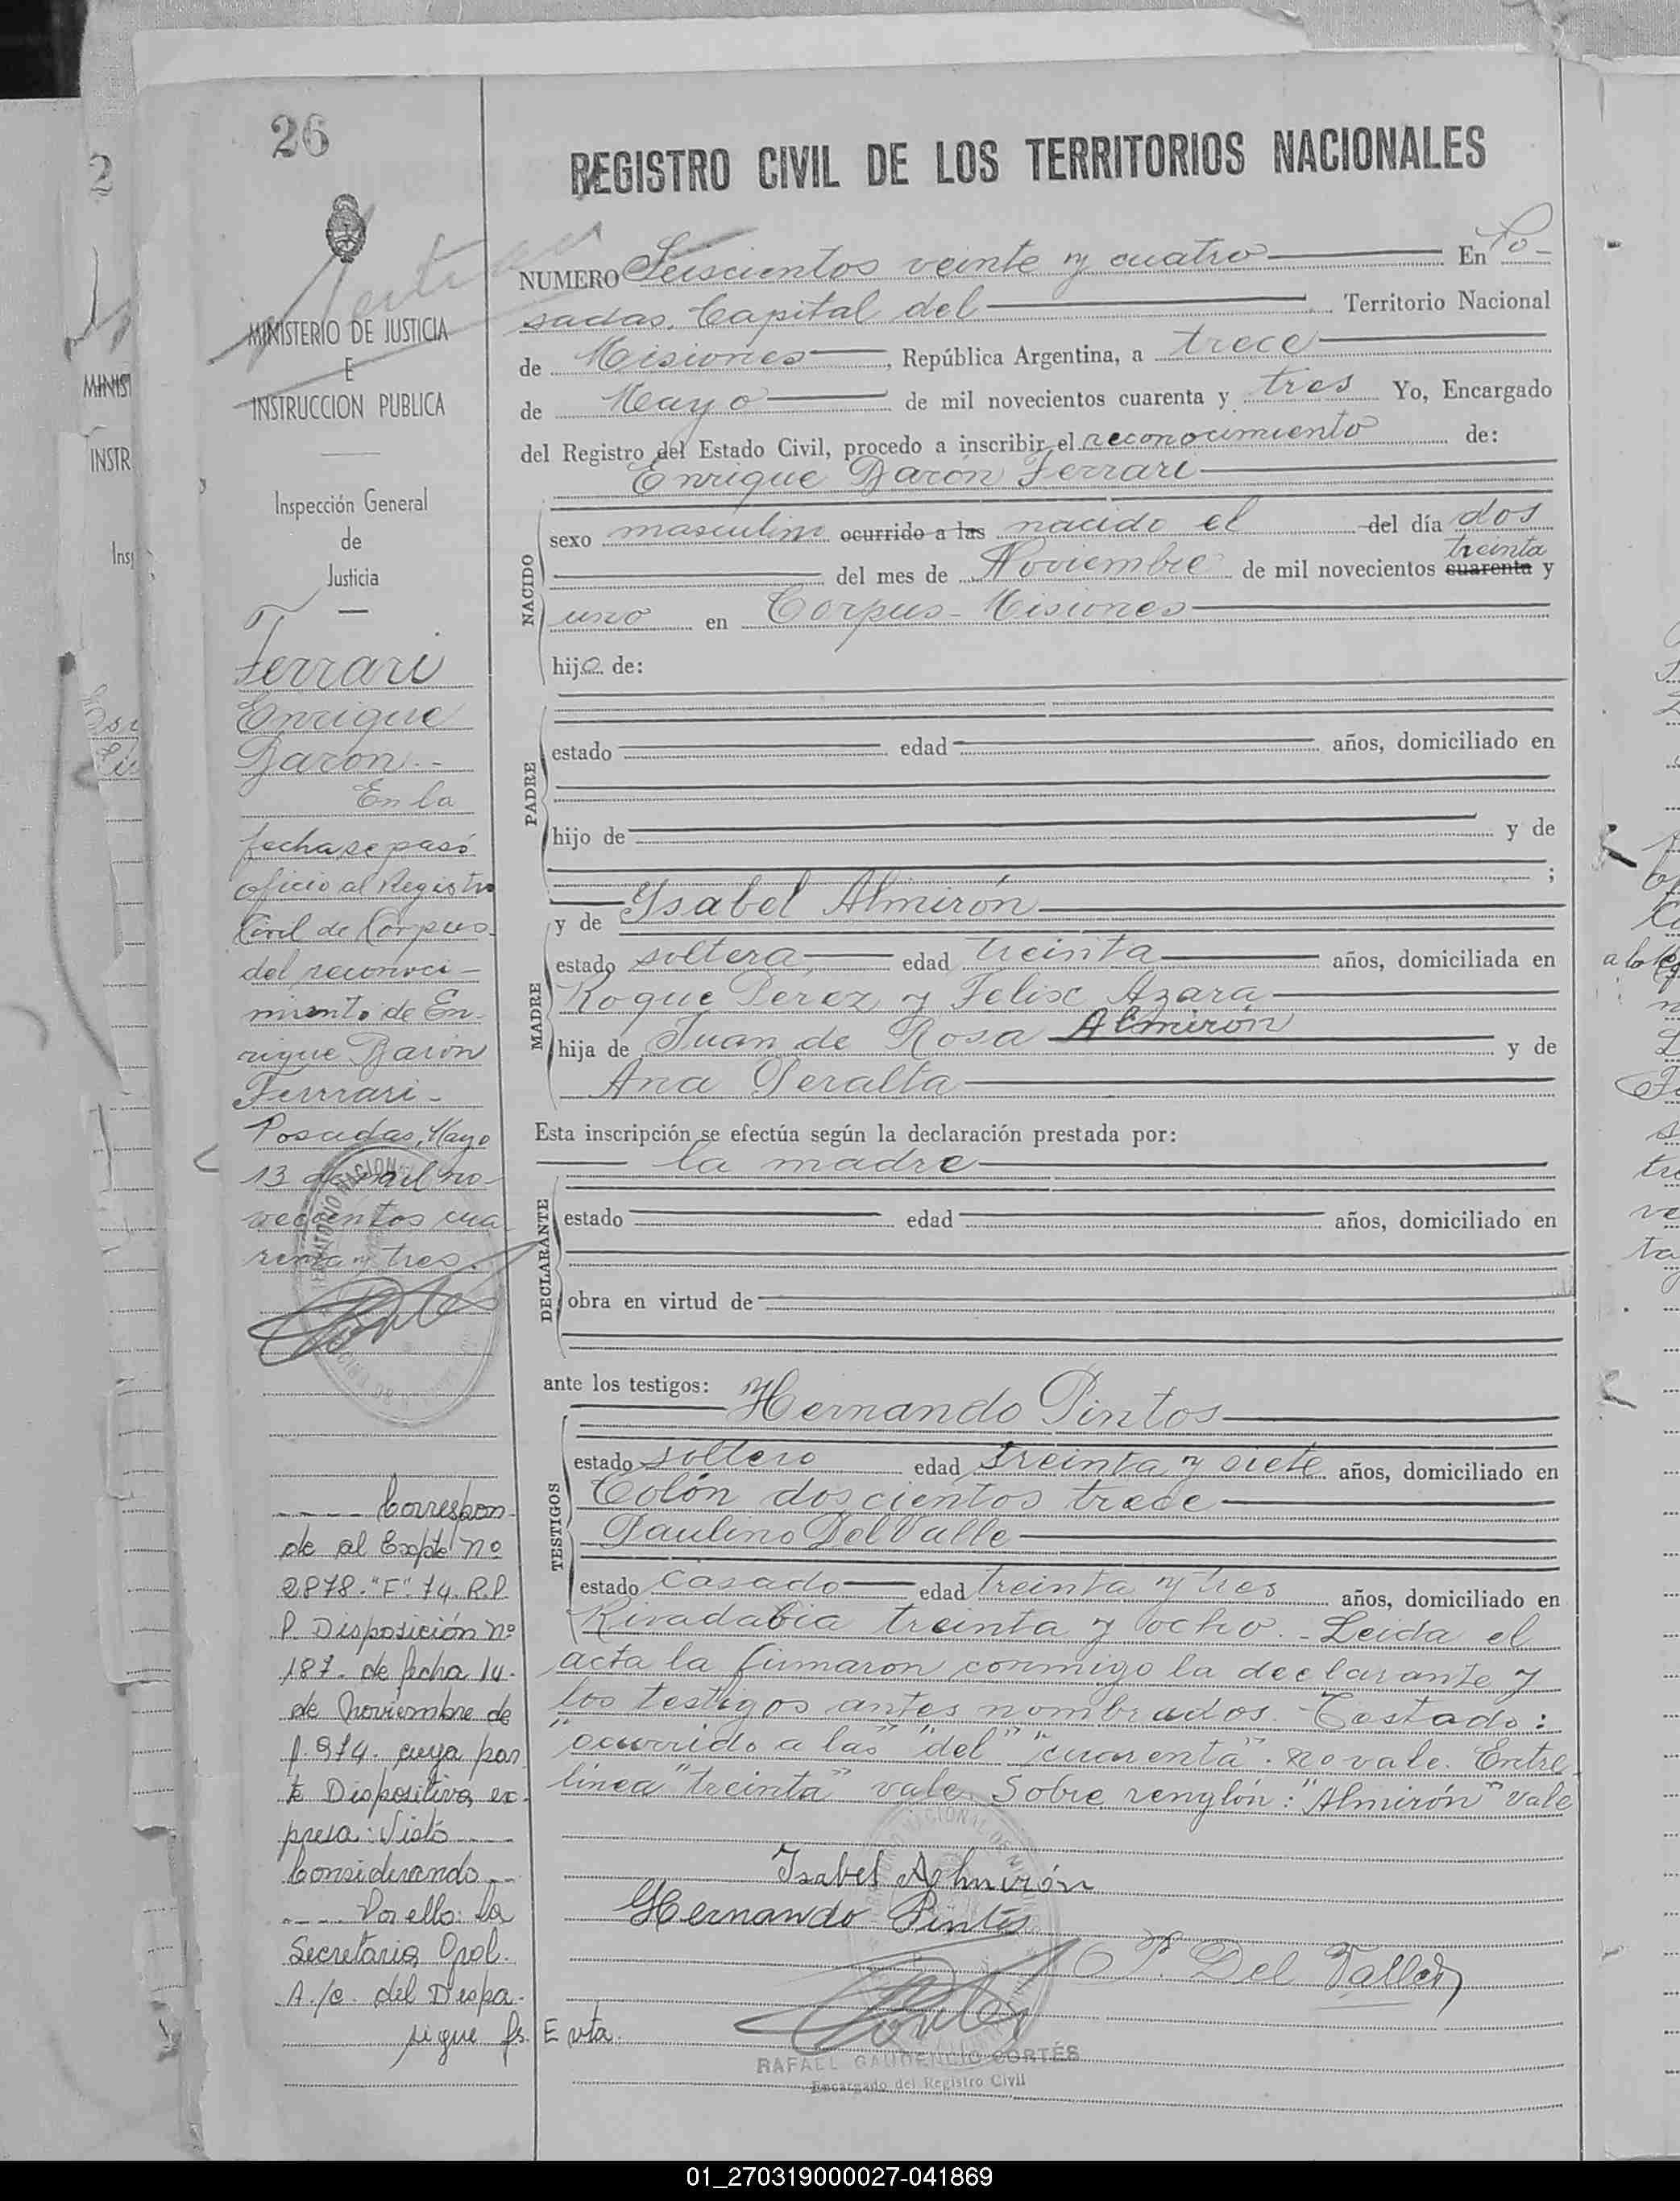 26
REGISTRO CIVIL DE LOS TERRITORIOS NACIONALES
MINISTERIO DE JUSTICIA
E
INSTRUCCION PUBLICA
Inspección General
de
Justicia
Ferrari
Enrique
Barón.-
En la
fecha se pasó
oficio al Registro
Civil de Corpus
del reconoci-
miento de En-
rique Barón
Ferrari-
Posadas, Mayo
13 de mil no-
vecientos cua-
renta y tres.
---- Correspon-
de al Expte Nº
2878-"F"-74-R.P.
P. Disposición Nº
187- de fecha 14-
de Noviembre de
1.974- cuya par-
te Dispositiva ex-
presa: Visto ----
Considerando ---
---- Por ello: La
Secretaria Gral.
A./c. del Despa-
sigue fs. E vta.
NUMERO Seiscientos veinte y cuatro En Po-
sadas, Capital del Territorio Nacional
de Misiones, República Argentina, a trece
de Mayo de mil novecientos cuarenta y tres Yo, Encargado
del Registro del Estado Civil, procedo a inscribir el reconocimiento de:
Enrique Barón Ferrari
NACIDO
sexo masculino ocurrido a las nacido el del día dos
treinta
del mes de Noviembre de mil novecientos cuarenta y
uno en Corpus-Misiones
hijo de:
PADRE
estado edad años, domiciliado en
hijo de y de
;
MADRE
y de Ysabel Almirón
estado soltera edad treinta años, domiciliada en
Roque Perez y Felix Azara
hija de Juan de Rosa Almirón y de
Ana Peralta
Esta inscripción se efectúa según la declaración prestada por:
la madre
DECLARANTE
estado edad años, domiciliado en
obra en virtud de
ante los testigos: Hernando Pintos
TESTIGOS
estado soltero edad treinta y siete años, domiciliado en
Colón doscientos trece
Paulino Del Valle
estado casado edad treinta y tres años, domiciliado en
Rivadabia treinta y ocho.- Leida el
acta la firmaron conmigo la declarante y
los testigos antes nombrados. Testado:
"ocurrido a las" "del" "cuarenta". no vale. Entre
línea "treinta" vale. Sobre renglón: "Almirón" Vale
Isabel Almirón
Hernando Pintos
P. Del Valle
RAFAEL GAUDENCIO CORTÉS
Encargado del Registro Civil
01_270319000027-041869